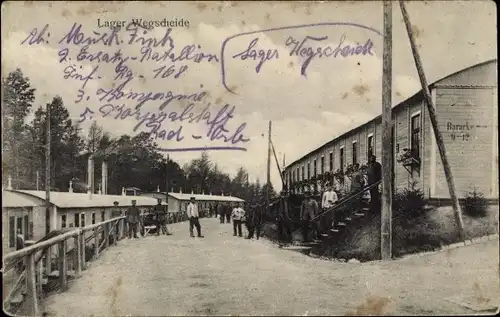 Lager Wegscheide
Ab: Musk. Fink
2. Ersatz-Batallion
Inf. Rg. 168
3. Kompagnie
5. Korporalschaft
Bad-Orb
Lager Wegscheide
Baracke
9-12